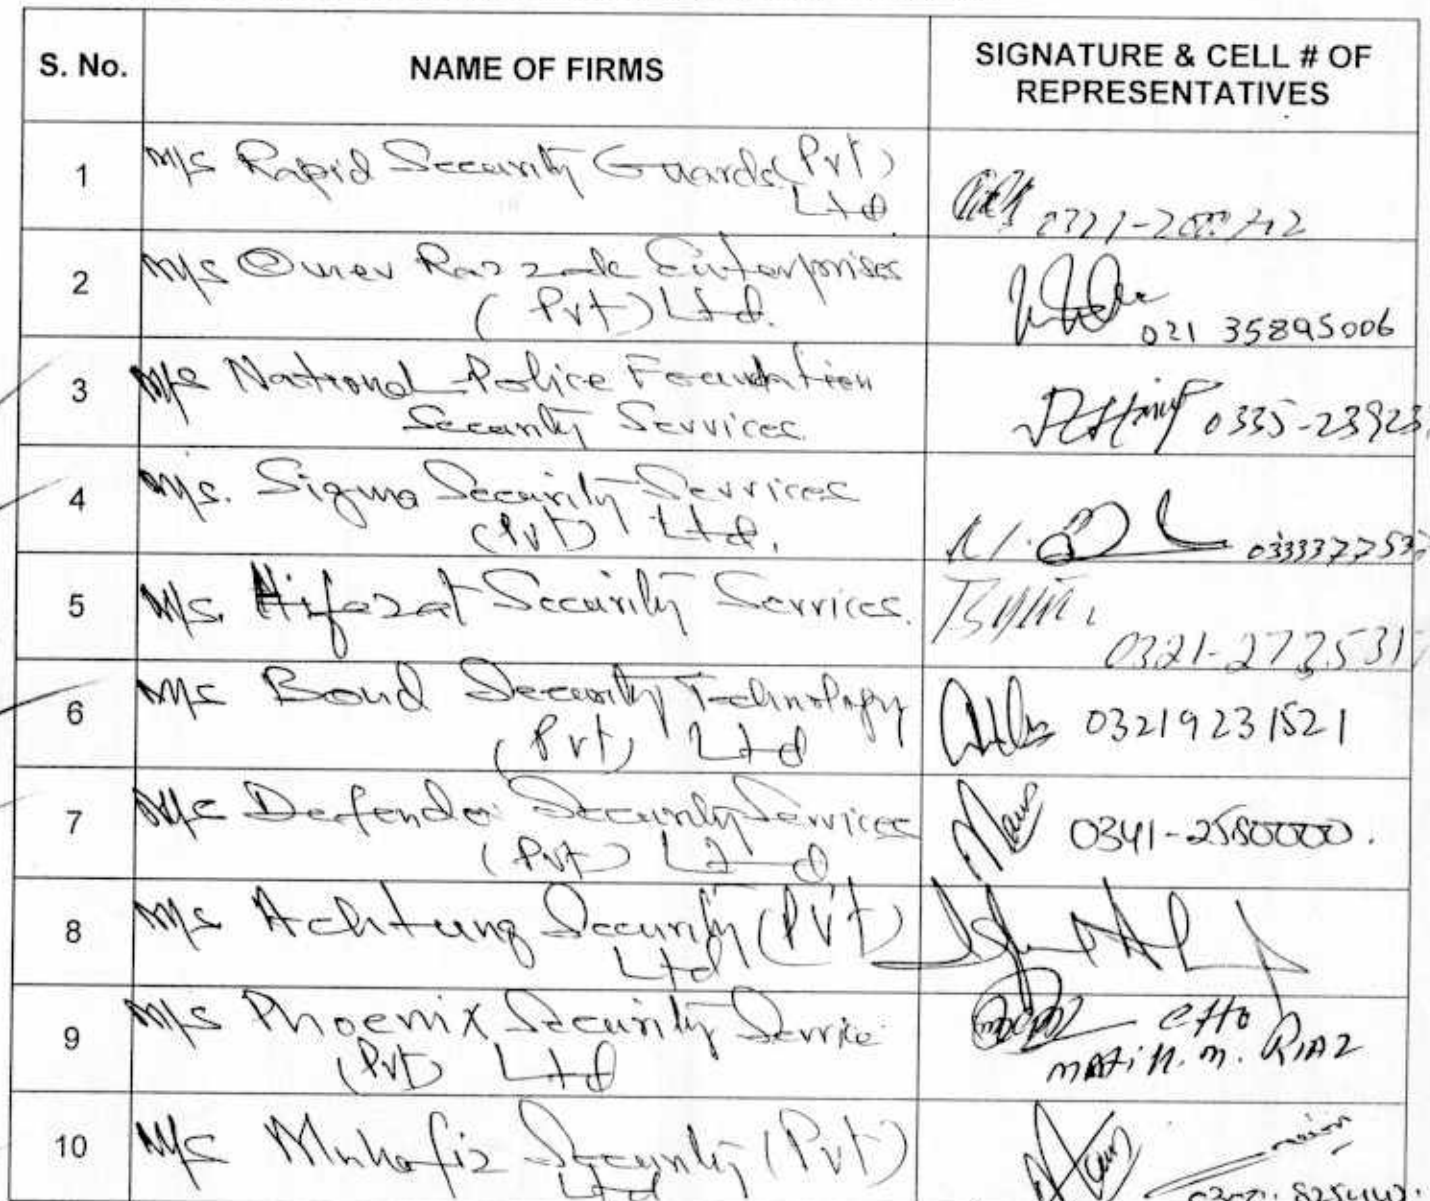 S. No.
NAME OF FIRMS
SIGNATURE & CELL # OF
REPRESENTATIVES
1
M/s Rapid Security Guards (Pvt)
Ltd
2
M/s Omer Razzak Enterprises
(Pvt) Ltd.
021 35895006
3
M/s National Police Foundation
Security Services
0335-23923
4
M/s. Sigma Security Services
(Pvt) Ltd.
5
M/s. Hifazat Security Services.
6
M/s Bond Security Technology
(Pvt) Ltd
03219231521
7
M/s Defender Security Services
(Pvt) Ltd
0341-2580000.
8
M/s Achtung Security (Pvt)
Ltd
9
M/s Phoenix Security Service
(Pvt) Ltd
RIAZ
10
M/s Muhafiz Security (Pvt)
Ltd